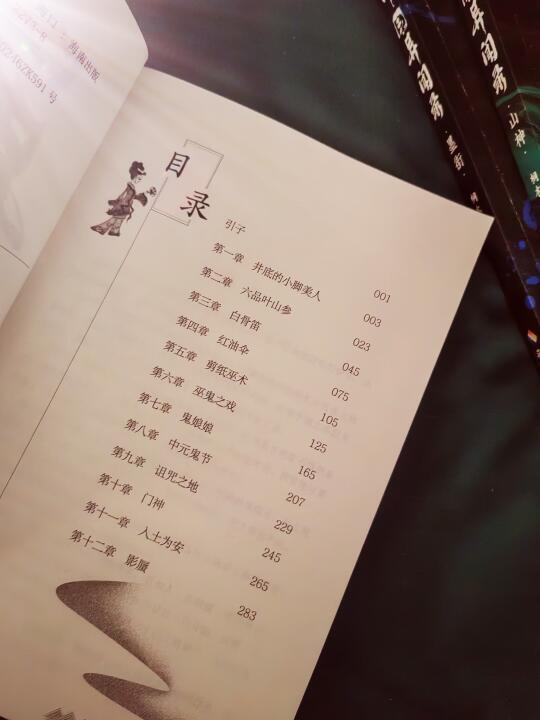 海南出版
号
目录
引子 001
第一章 井底的小脚美人 003
第二章 六品叶山参 023
第三章 白骨笛 045
第四章 红油伞 075
第五章 剪纸巫术 105
第六章 巫鬼之戏 125
第七章 鬼娘娘 165
第八章 中元鬼节 207
第九章 诅咒之地 229
第十章 门神 245
第十一章 入土为安 265
第十二章 影蜃 283
国异闻录
异闻录·山神·